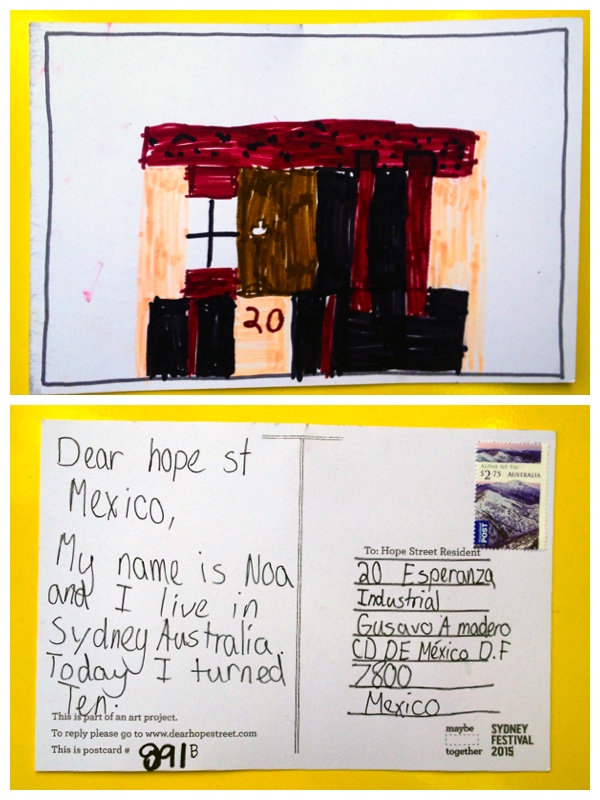 20
Dear hope st
Mexico,
My name is Noa
and I live in
Sydney Australia.
Today I turned
Ten.
This is part of an art project.
To reply please go to www.dearhopestreet.com
This is postcard # 891B
ALPINE N.P. VIC
$2.75 AUSTRALIA
POST
To: Hope Street Resident
20 Esperanza
Industrial
Gusavo A madero
CD DE México D.F
7800
Mexico
maybe
together
SYDNEY
FESTIVAL
2015